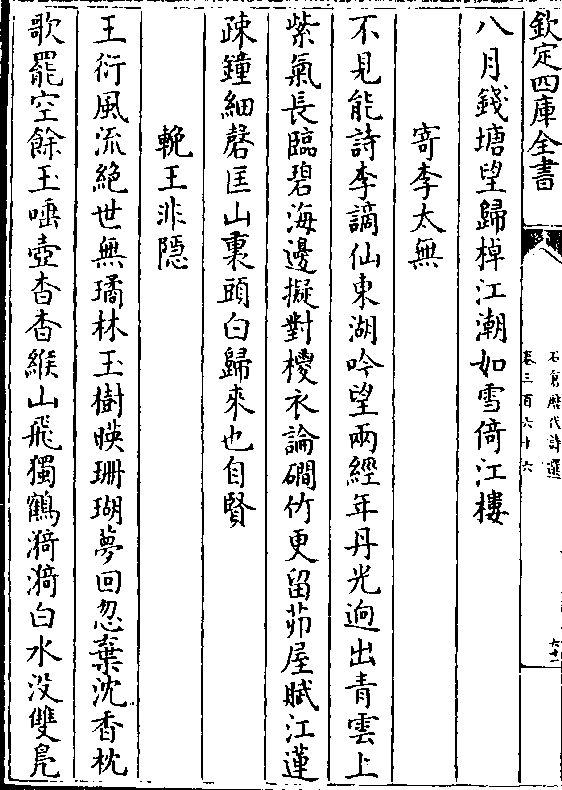 欽定四庫全書
石倉歷代詩選
卷三百六十六
八月錢塘望歸棹江潮如雪倚江樓
寄李太無
不見能詩李謫仙東湖吟望兩經年丹光逈出青雲上
紫氣長臨碧海邊擬對椶衣論磵竹更留茆屋賦江蓮
疎鐘細磬匡山裏頭白歸來也自賢
輓王非隱
王衍風流絕世無璚林玉樹暎珊瑚夢回忽棄沈香枕
歌罷空餘玉唾壺杳杳緱山飛獨鶴漪漪白水没雙鳧